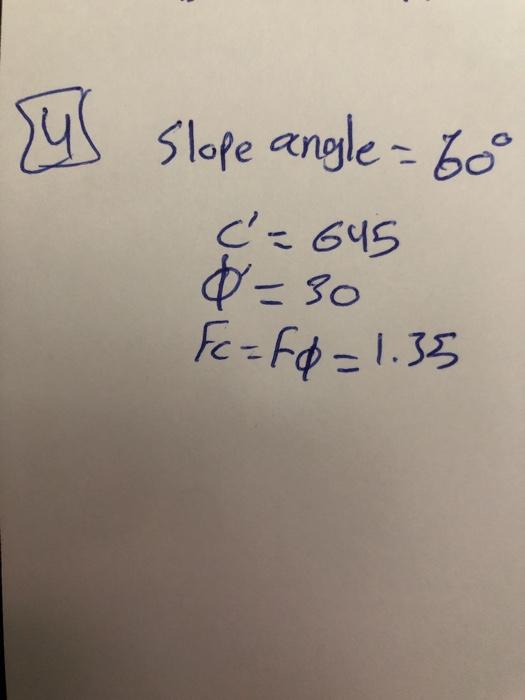 4 Slope angle = 60°
C' = 645
Φ' = 30
Fc = Fφ = 1.35